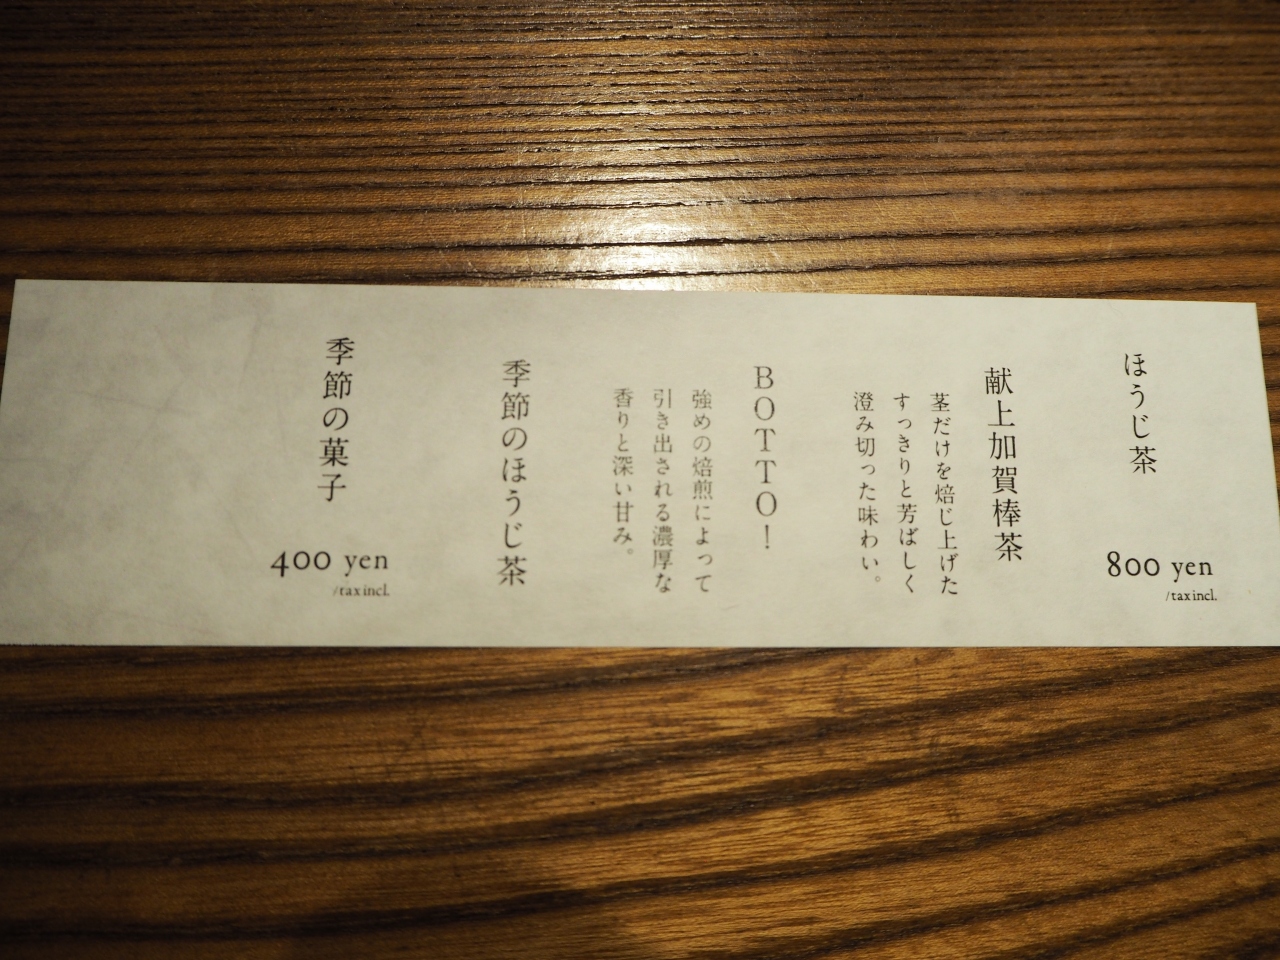 ほうじ茶
800 yen
/tax incl.
献上加賀棒茶
茎だけを焙じ上げた
すっきりと芳ばしく
澄み切った味わい。
BOTTO!
強めの焙煎によって
引き出される濃厚な
香りと深い甘み。
季節のほうじ茶
季節の菓子
400 yen
/tax incl.